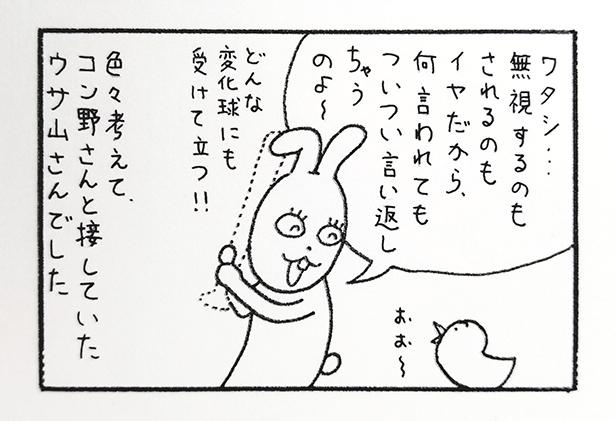 ワタシ…
無視するのも
されるのも
イヤだから、
何言われても
ついつい言い返し
ちゃう
のよ〜
どんな
変化球にも
受けて立つ!!
おぉ〜
色々考えて、
コン野さんと接していた
ウサ山さんでした